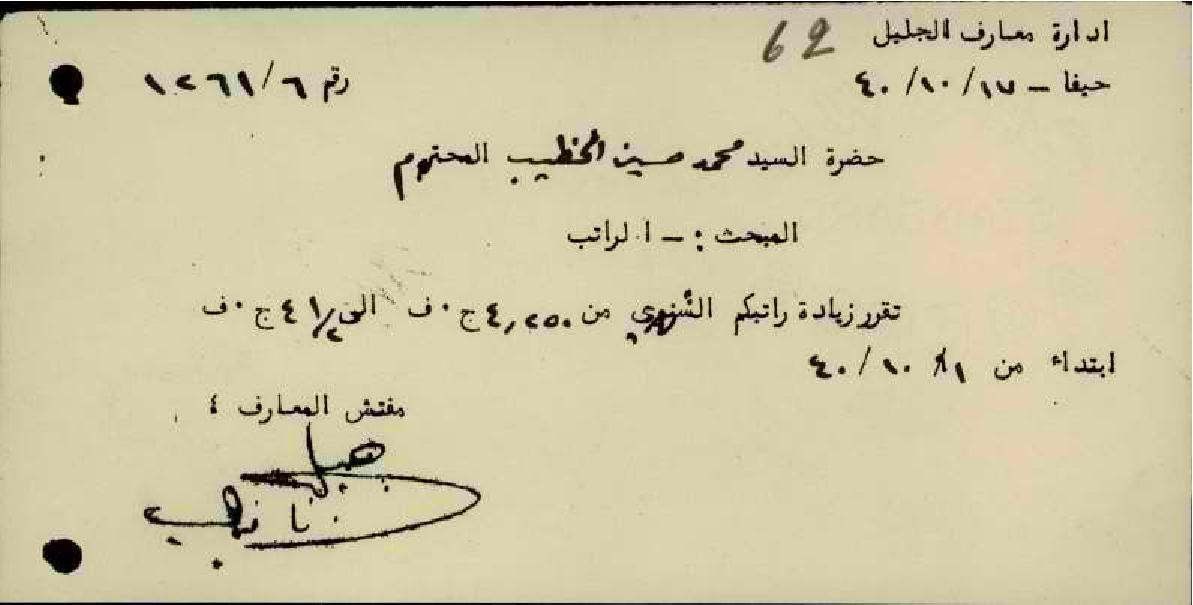 ادارة معارف الجليل 62
حيفا – ١٧/١٠/٤٠ رقم ١٢٦١/٦
حضرة السيد محمد حسين الخطيب المحترم
المبحث : – الراتب
تقرر زيادة راتبكم الشهري من ٤,٢٥٠ ج ٠ ف الى ٤ ١/٢ ج ٠ ف
ابتداء من ١/ ١٠ /٤٠
مفتش المعارف ٤